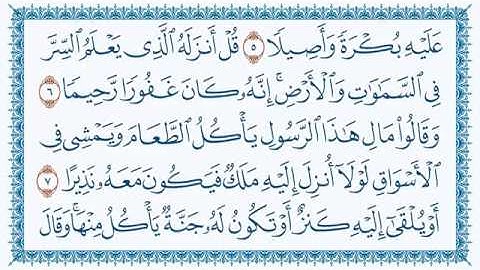 عَلَيْهِ بُكْرَةً وَأَصِيلًا ٥ قُلْ أَنزَلَهُ الَّذِى يَعْلَمُ السِّرَّ
فِى السَّمَٰوَٰتِ وَالْأَرْضِ ۚ إِنَّهُۥ كَانَ غَفُورًا رَّحِيمًا ٦
وَقَالُوا۟ مَالِ هَٰذَا الرَّسُولِ يَأْكُلُ الطَّعَامَ وَيَمْشِى فِى
الْأَسْوَاقِ لَوْلَآ أُنزِلَ إِلَيْهِ مَلَكٌ فَيَكُونَ مَعَهُۥ نَذِيرًا ٧
أَوْ يُلْقَىٰٓ إِلَيْهِ كَنزٌ أَوْ تَكُونُ لَهُۥ جَنَّةٌ يَأْكُلُ مِنْهَا ۚ وَقَالَ